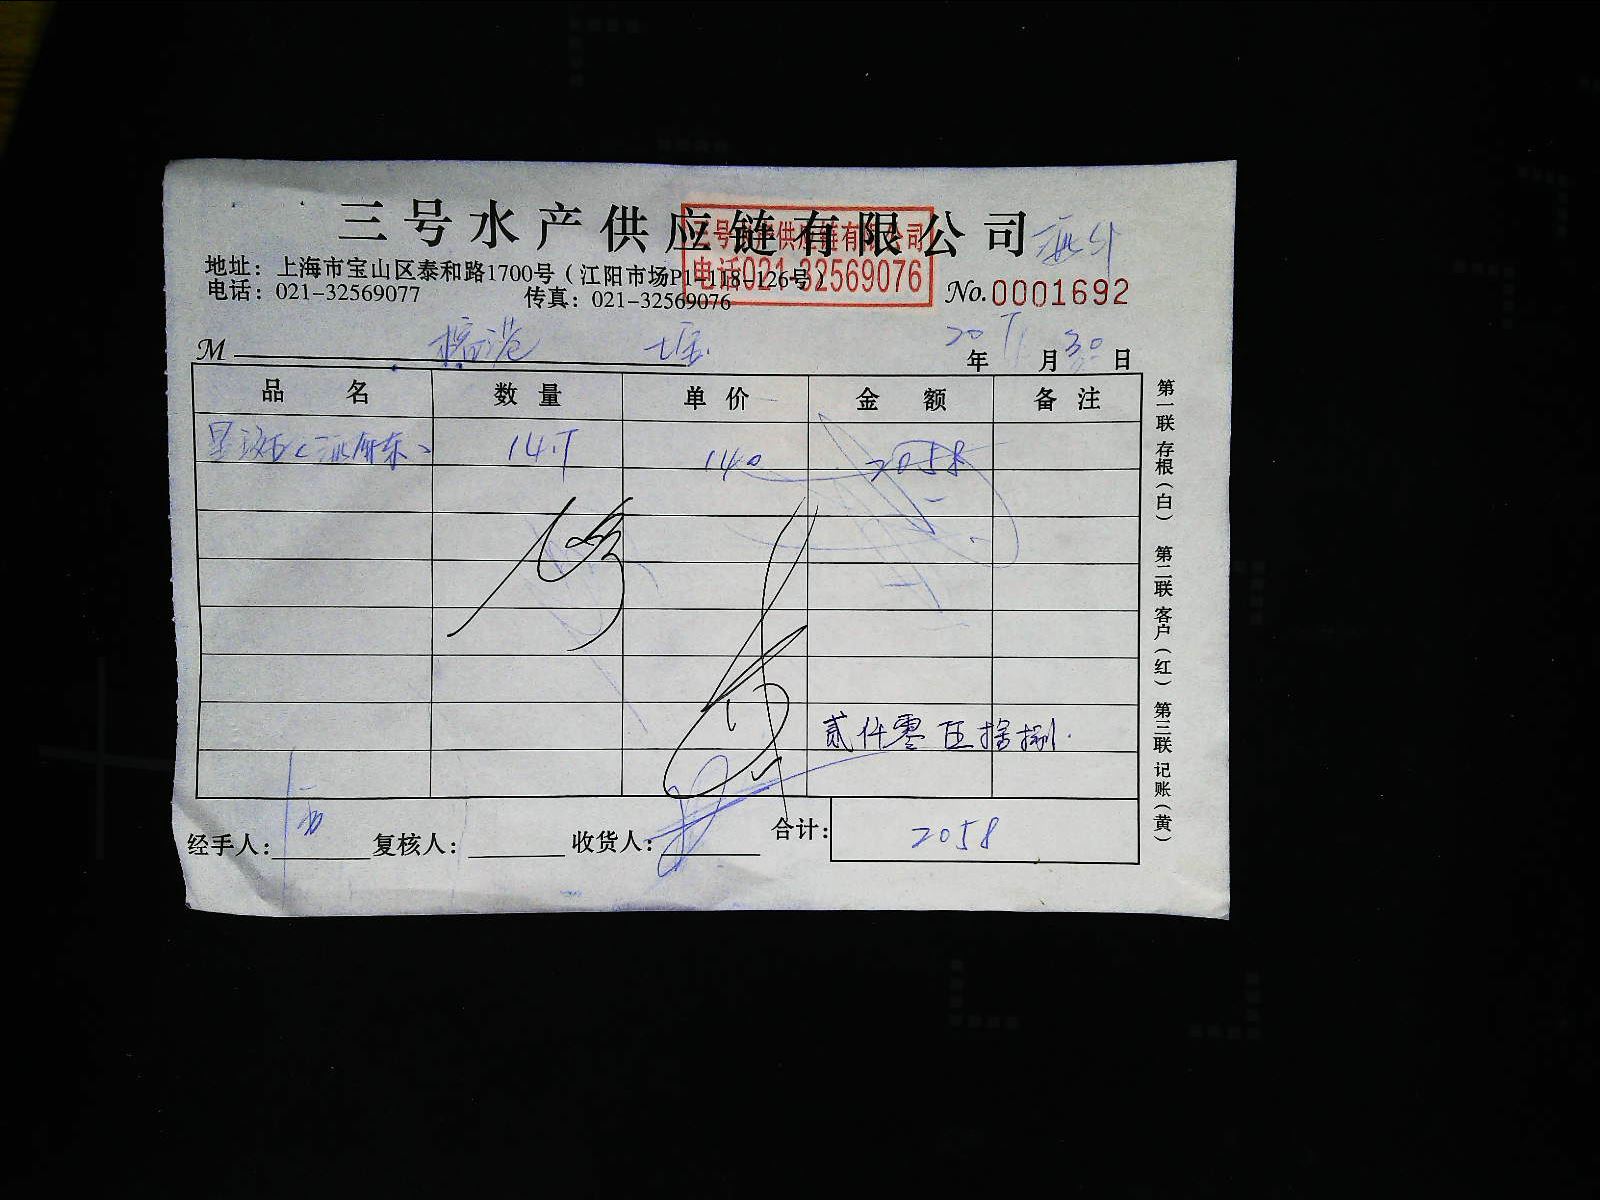 三号水产供应链有限公司
三号水产供应链有限公司
电话021-32569076
地址：上海市宝山区泰和路1700号（江阳市场P1-118-126号）
电话：021-32569077 传真：021-32569076
No.0001692
M
20年 月30日
品名 数量 单价 金额 备注
140 2058
贰仟零伍拾捌
经手人： 复核人： 收货人： 合计： 2058
第一联 存根（白） 第二联 客户（红） 第三联 记账（黄）